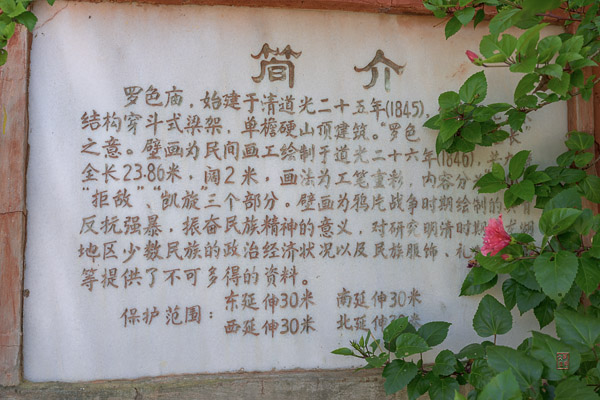 简介
罗色庙，始建于清道光二十五年(1845)，
结构穿斗式梁架，单檐硬山顶建筑。“罗色
之意。壁画为民间画工绘制于道光二十六年(1846)，共
全长23.86米，阔2米，画法为工笔重彩，内容分
“拒敌”、“凯旋”三个部分。壁画为鸦片战争时期绘制的
反抗强暴，振奋民族精神的意义，对研究明清时期
地区少数民族的政治经济状况以及民族服饰、礼
等提供了不可多得的资料。
保护范围：
东延伸30米 南延伸30米
西延伸30米 北延伸30米